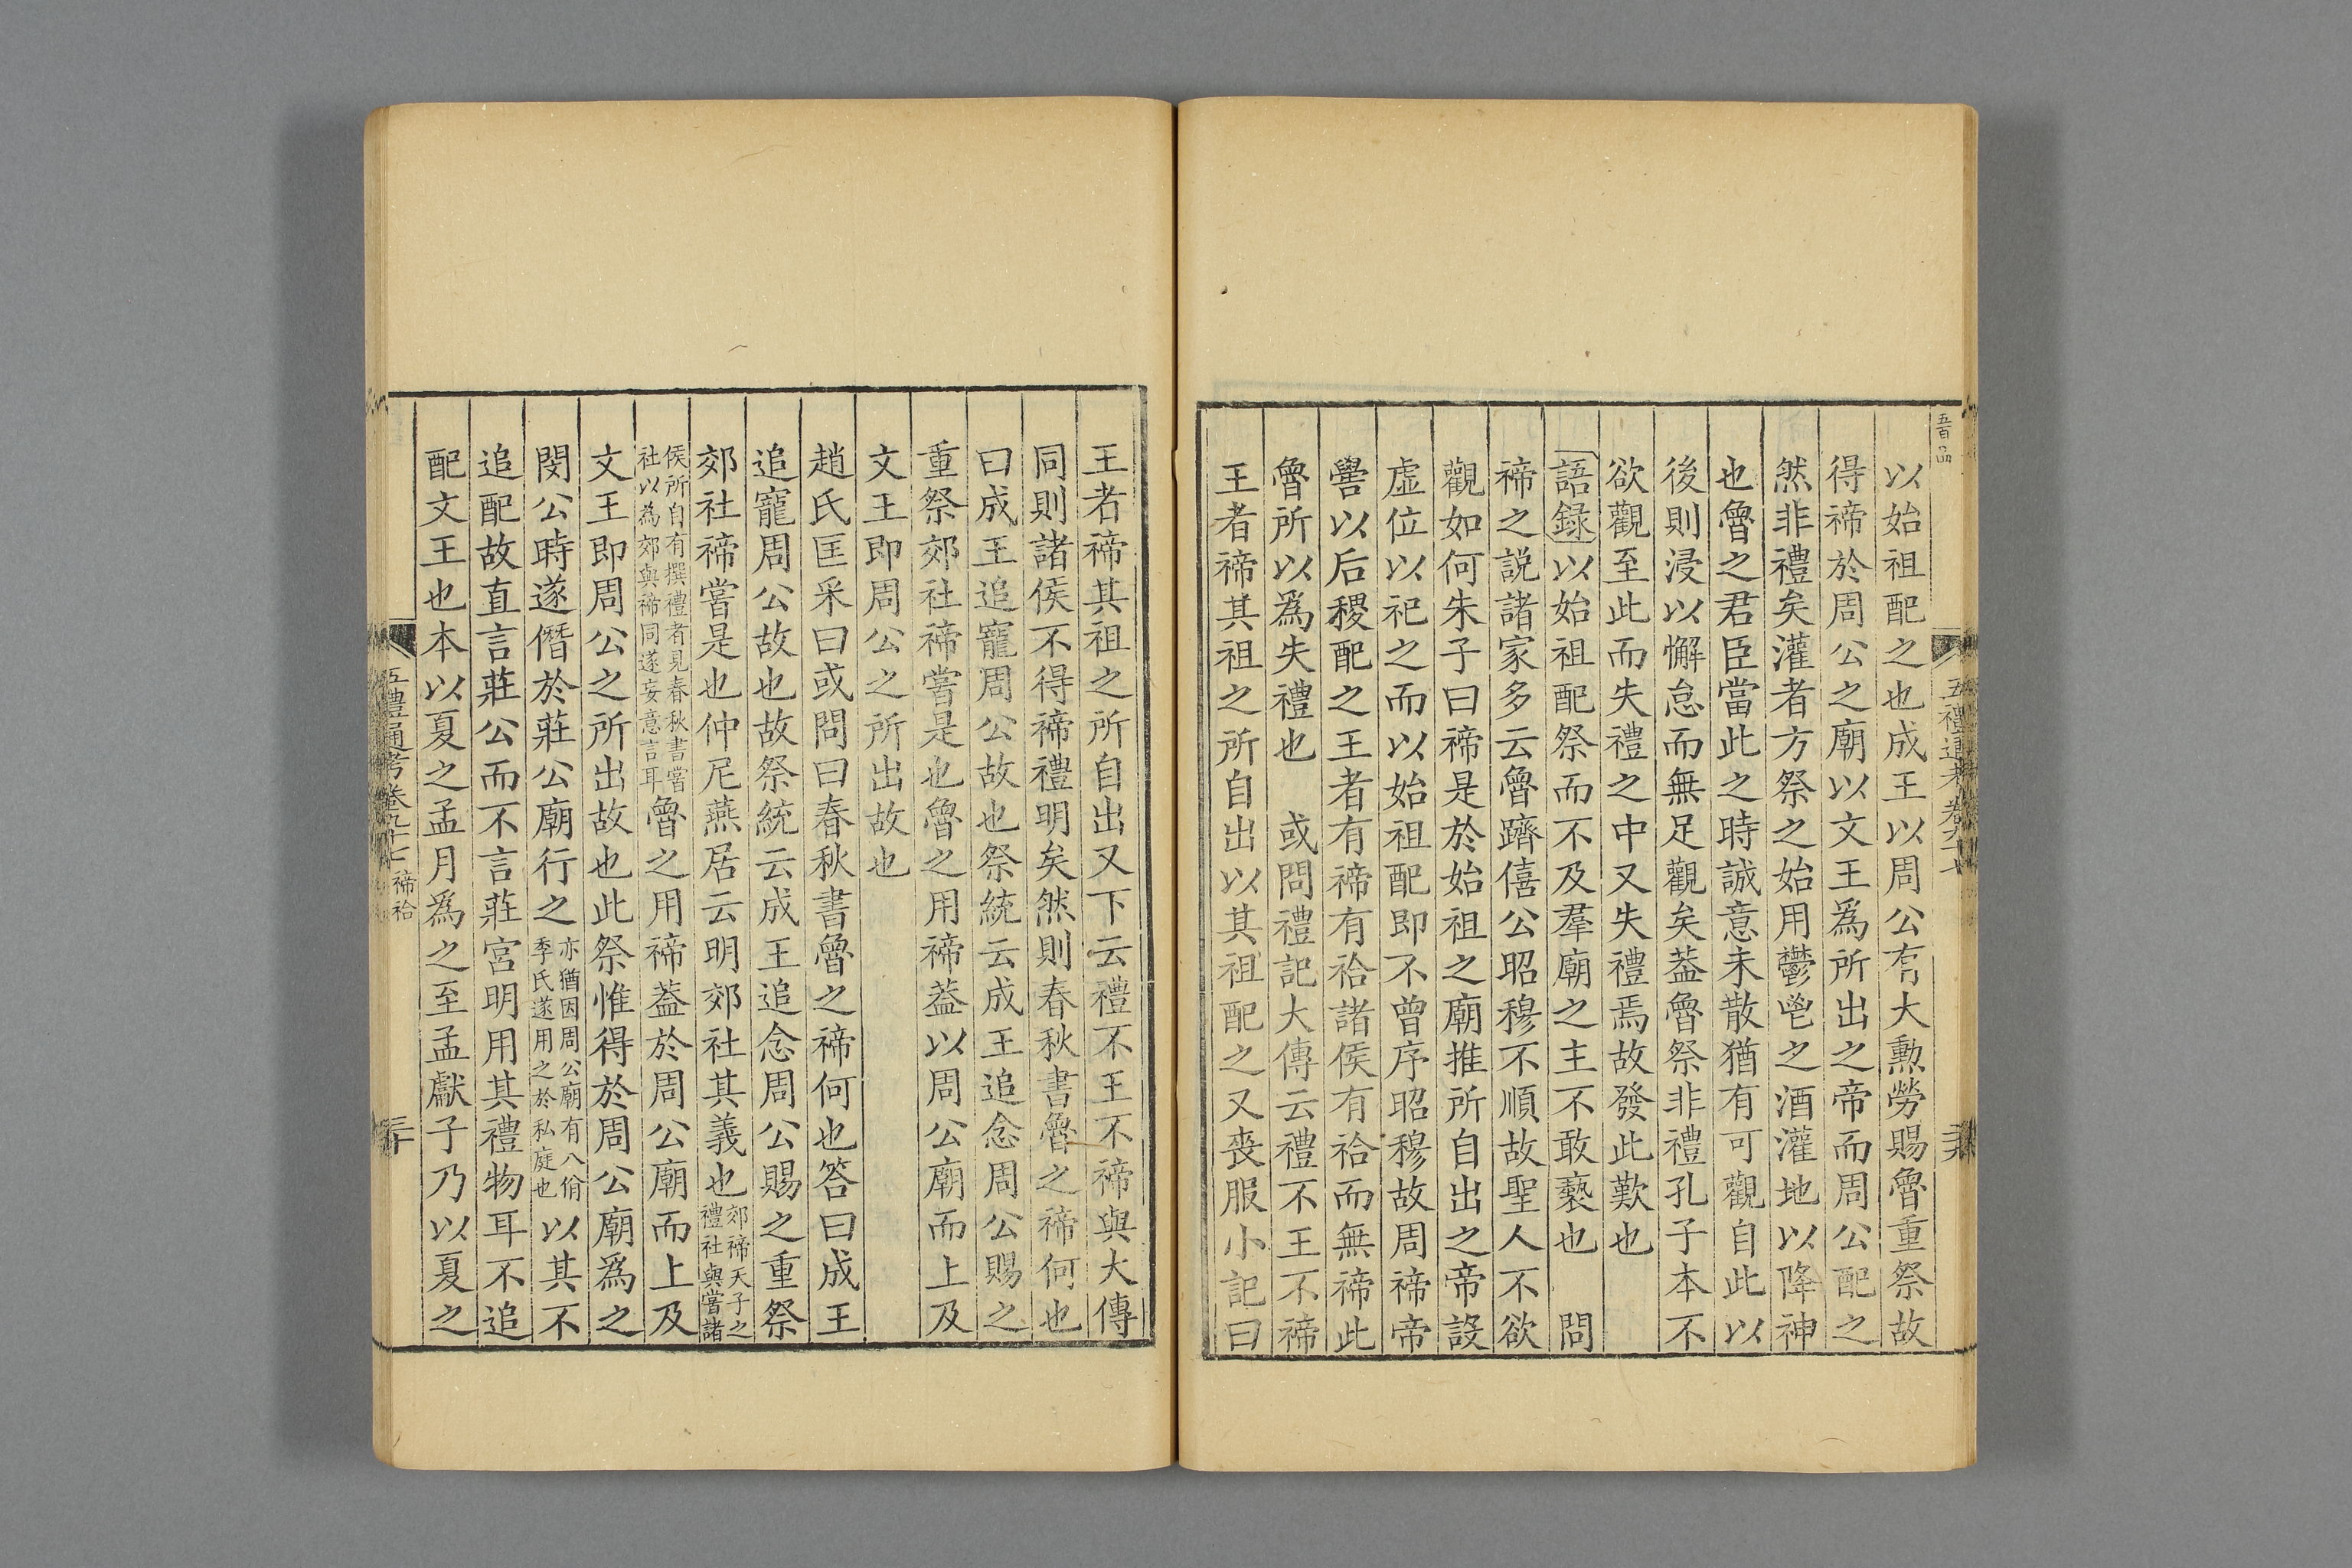 以始祖配之也成王以周公有大勲勞賜魯重祭故
得禘於周公之廟以文王爲所出之帝而周公配之
然非禮矣灌者方祭之始用鬱鬯之酒灌地以降神
也魯之君臣當此之時誠意未散猶有可觀自此以
後則浸以懈怠而無足觀矣葢魯祭非禮孔子本不
欲觀至此而失禮之中又失禮焉故發此歎也
語錄以始祖配祭而不及羣廟之主不敢褻也　問
禘之説諸家多云魯躋僖公昭穆不順故聖人不欲
觀如何朱子曰禘是於始祖之廟推所自出之帝設
虛位以祀之而以始祖配即不曾序昭穆故周禘帝
嚳以后稷配之王者有禘有祫諸侯有祫而無禘此
魯所以爲失禮也　或問禮記大傳云禮不王不禘
王者禘其祖之所自出以其祖配之又喪服小記曰
王者禘其祖之所自出又下云禮不王不禘與大傳
同則諸侯不得禘禮明矣然則春秋書魯之禘何也
曰成王追寵周公故也祭統云成王追念周公賜之
重祭郊社禘嘗是也魯之用禘葢以周公廟而上及
文王即周公之所出故也
趙氏匡采曰或問曰春秋書魯之禘何也答曰成王
追寵周公故也故祭統云成王追念周公賜之重祭
郊社禘嘗是也仲尼燕居云明郊社其義也郊禘天子之禮社與嘗諸
侯所自有撰禮者見春秋書嘗社以為郊與禘同遂妄意言耳魯之用禘葢於周公廟而上及
文王即周公之所出故也此祭惟得於周公廟爲之
閔公時遂僭於莊公廟行之亦猶因周公廟有八佾季氏遂用之於私庭也以其不
追配故直言莊公而不言莊宮明用其禮物耳不追
配文王也本以夏之孟月爲之至孟獻子乃以夏之
五禮通考卷九十七 禘祫